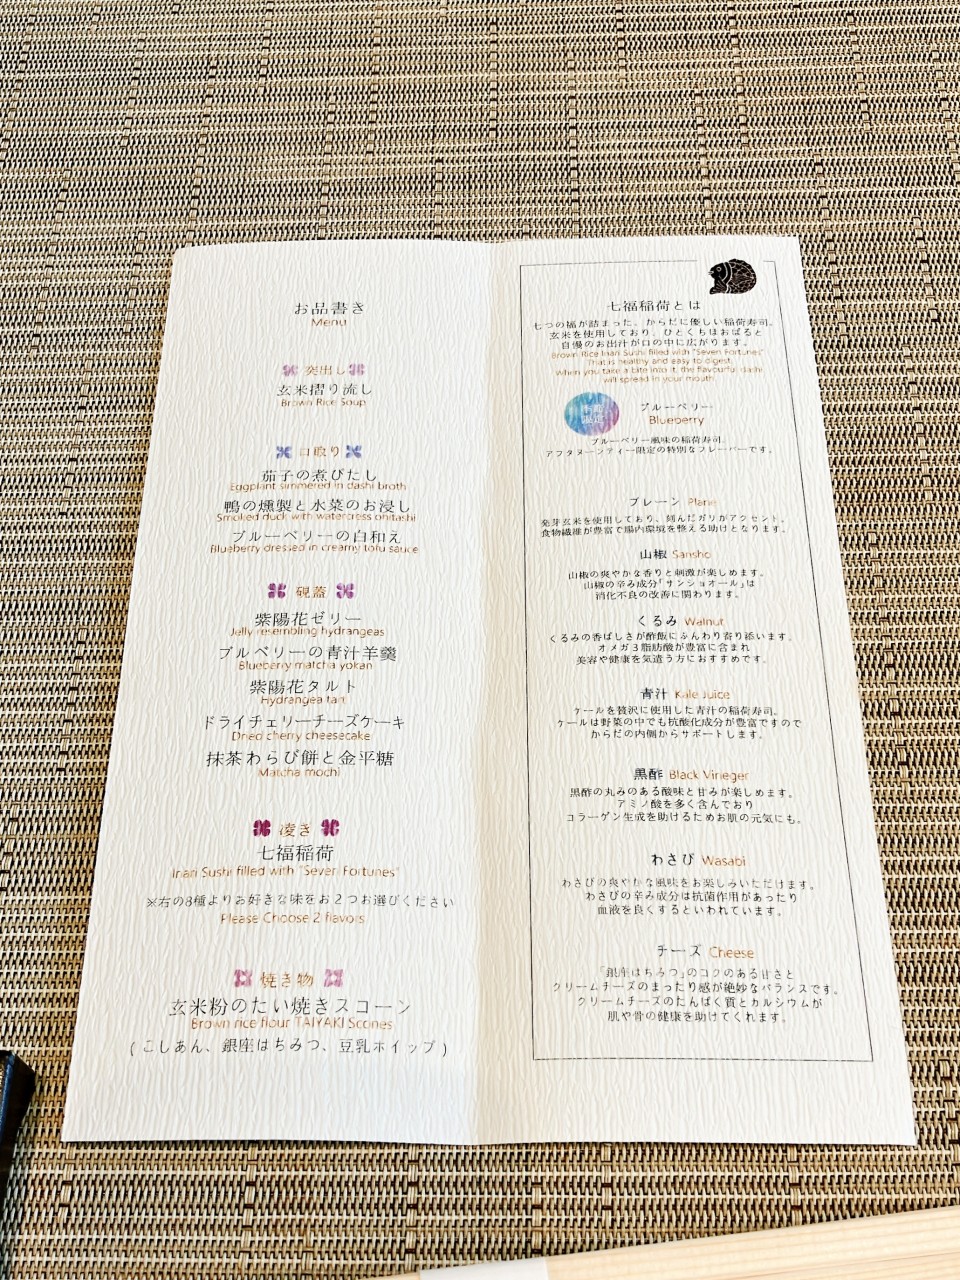 お品書き
Menu
突出し
玄米摺り流し
Brown Rice Soup
口取り
茄子の煮びたし
Eggplant simmered in dashi broth
鴨の燻製と水菜のお浸し
Smoked duck with watercress ohitashi
ブルーベリーの白和え
Blueberry dressed in creamy tofu sauce
硯蓋
紫陽花ゼリー
Jelly resembling hydrangeas
ブルベリーの青汁羊羹
Blueberry matcha yokan
紫陽花タルト
Hydrangea tart
ドライチェリーチーズケーキ
Dried cherry cheesecake
抹茶わらび餅と金平糖
Matcha mochi
凌ぎ
七福稲荷
Inari Sushi filled with "Seven Fortunes"
※右の8種よりお好きな味をお２つお選びください
Please Choose 2 flavors
焼き物
玄米粉のたい焼きスコーン
Brown rice flour TAIYAKI Scones
(こしあん、銀座はちみつ、豆乳ホイップ)
七福稲荷とは
七つの福が詰まった、からだに優しい稲荷寿司。
玄米を使用しており、ひとくちほおばると
自慢のお出汁が口の中に広がります。
Brown Rice Inari Sushi filled with "Seven Fortunes"
That is healthy and easy to digest.
When you take a bite into it, the flavourful dashi
will spread in your mouth.
季節
限定
ブルーベリー
Blueberry
ブルーベリー風味の稲荷寿司。
アフタヌーンティー限定の特別なフレーバーです。
プレーン Plane
発芽玄米を使用しており、刻んだガリがアクセント。
食物繊維が豊富で腸内環境を整える助けとなります。
山椒 Sansho
山椒の爽やかな香りと刺激が楽しめます。
山椒の辛み成分「サンショオール」は
消化不良の改善に関わります。
くるみ Walnut
くるみの香ばしさが酢飯にふんわり寄り添います。
オメガ３脂肪酸が豊富に含まれ
美容や健康を気遣う方におすすめです。
青汁 Kale Juice
ケールを贅沢に使用した青汁の稲荷寿司。
ケールは野菜の中でも抗酸化成分が豊富ですので
からだの内側からサポートします。
黒酢 Black Vineger
黒酢の丸みのある酸味と甘みが楽しめます。
アミノ酸を多く含んでおり
コラーゲン生成を助けるためお肌の元気にも。
わさび Wasabi
わさびの爽やかな風味をお楽しみいただけます。
わさびの辛み成分は抗菌作用があったり
血液を良くするといわれています。
チーズ Cheese
「銀座はちみつ」のコクのある甘さと
クリームチーズのまったり感が絶妙なバランスです。
クリームチーズのたんぱく質とカルシウムが
肌や骨の健康を助けてくれます。